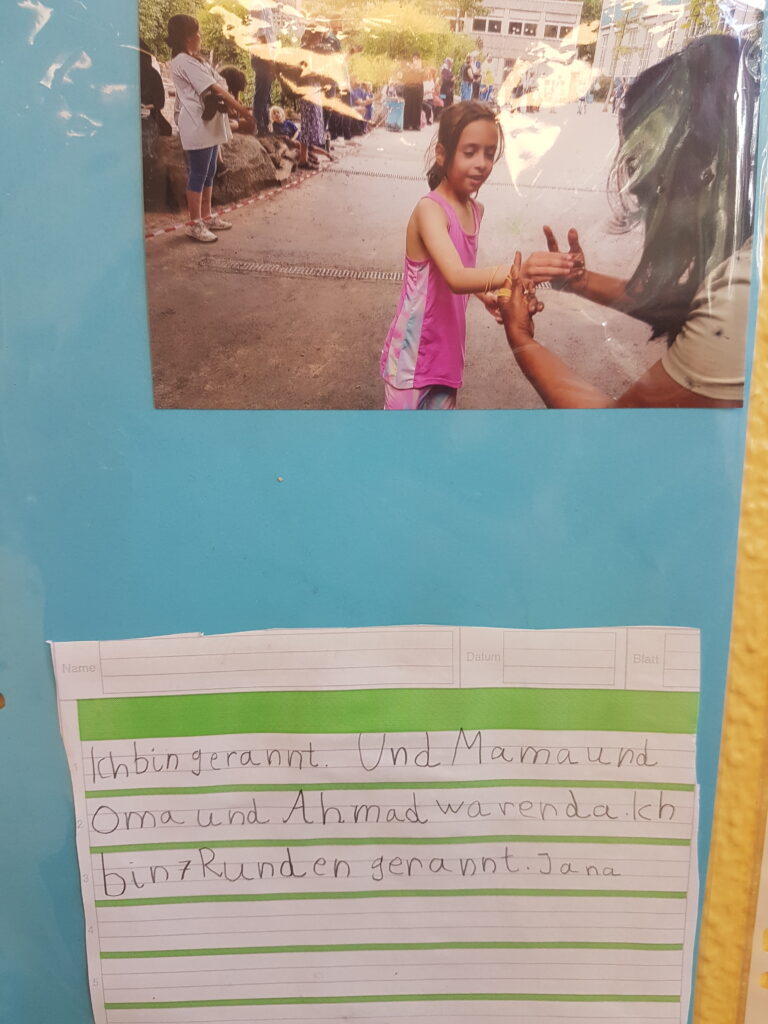 Name Datum Blatt
1 Ich bin gerannt. Und Mama und
2 Oma und Ahmad waren da. Ich
3 bin 7 Runden gerannt. Jana
4
5